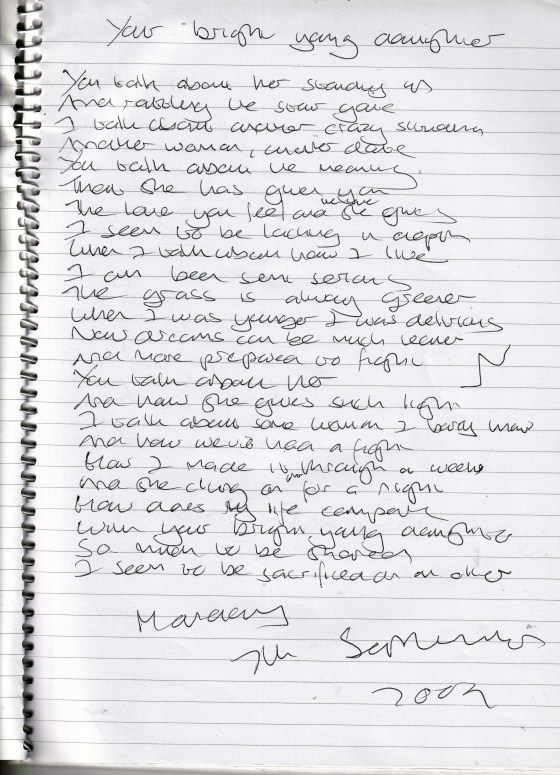 Your bright young daughter
You talk about her standing up
And rattling the stair gate
I talk about another crazy
Another woman, another date
You talk about the meaning
That she has given you
The love you feel and the love she gives
I seem to be lacking in depth
When I talk about how I live
I can been semi serious
The grass is always greener
When I was younger I was delirious
Now dreams can be much
And more prepared to fight
You talk about her
And how she gives such light
I talk about some woman I barely know
And how we've had a fight
How I made it through a week
And she clung on for a night
How does my life compare
With your bright young daughter
So much to be shared
I seem to be sacrificed on an alter
7th September